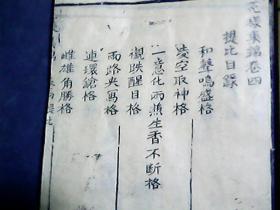 花樣集錦卷四
提比目錄
和聲鳴盛格
凌空取神格
一意化兩生香不斷格
襯映醒目格
兩路夾寫格
連環鎖格
雌雄角勝格